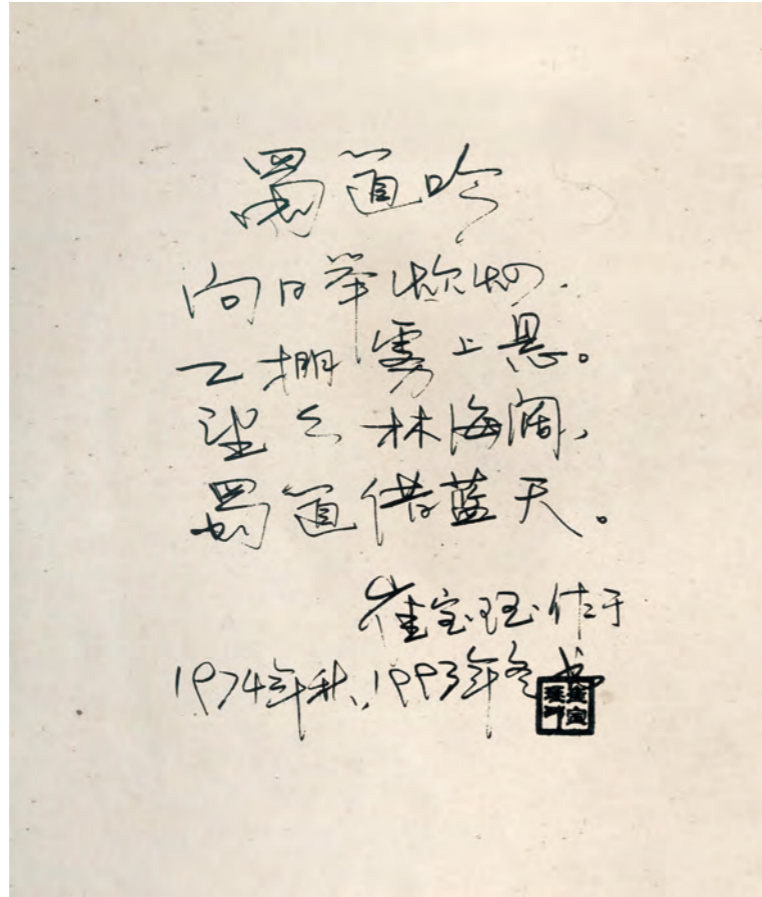 蜀道吟
向日举
工棚雾上悬。
望 林海阔,
蜀道借蓝天。
崔宝珏作于
1974年秋,1993年冬书